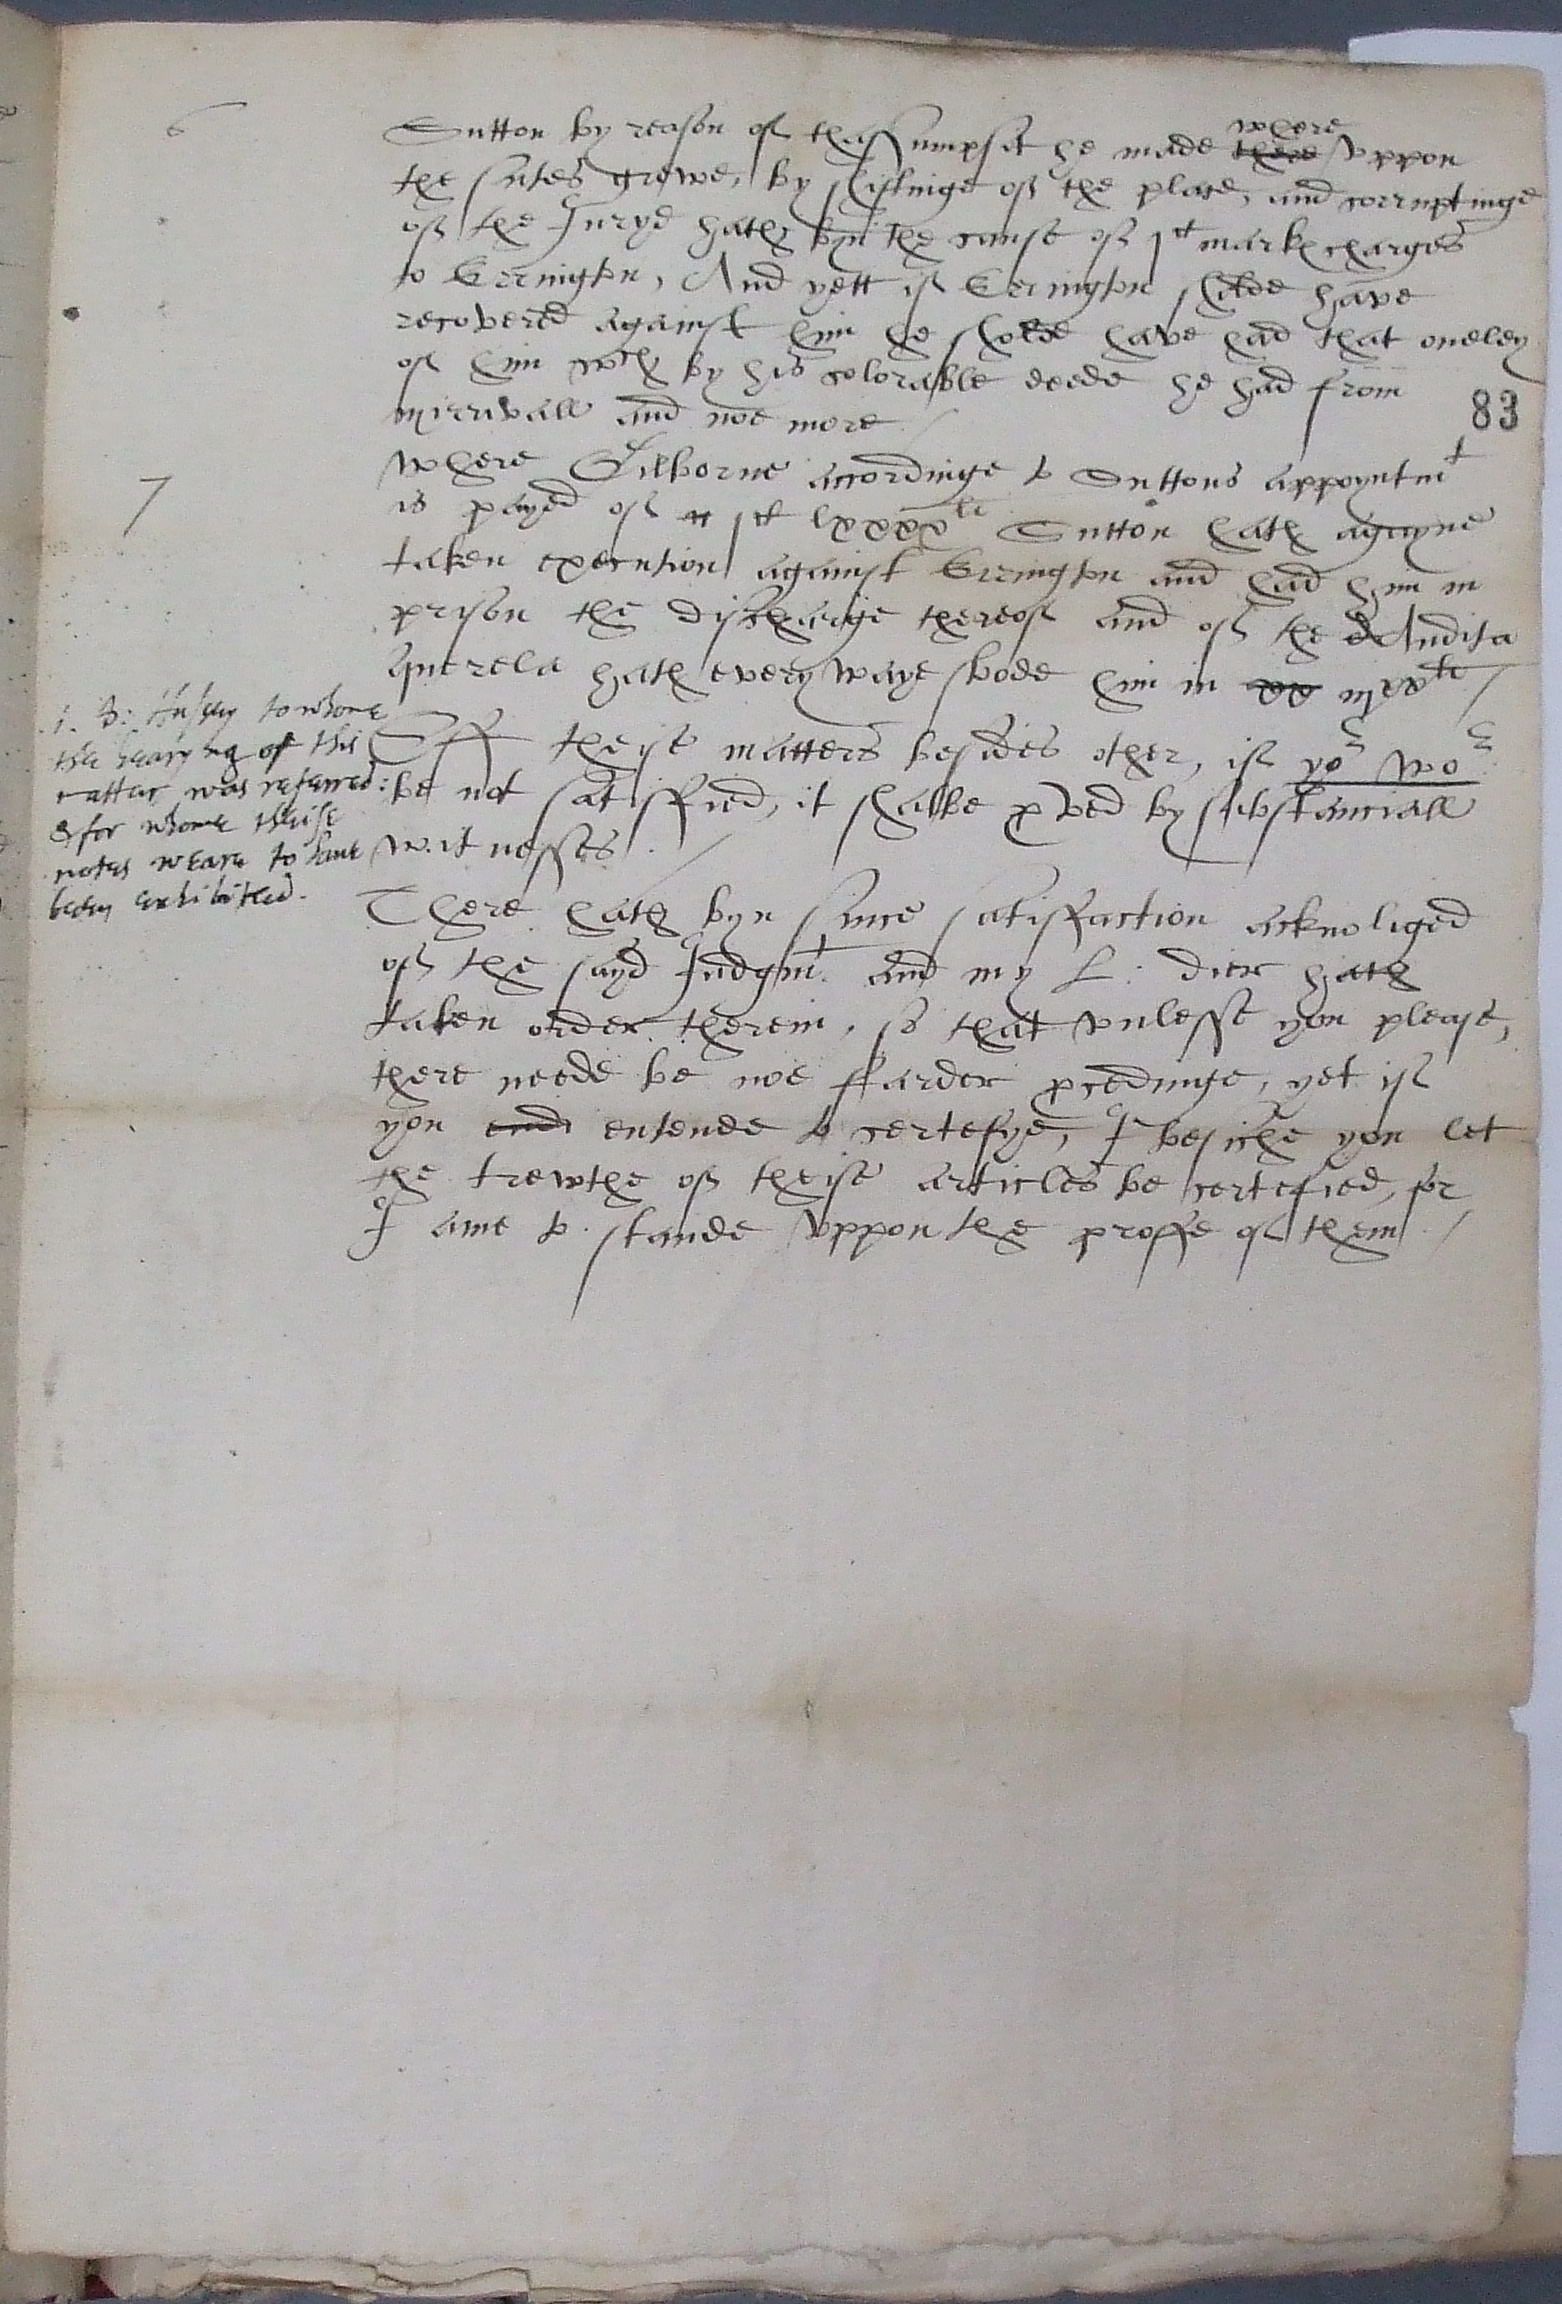 6
Sutton by reason of thassumpsit he made where there uppon
the sutes growe, by shiftinge of the place, and corruptinge
of the Jurye hath byn the cause of j ct mark charges
to Errington, And yett if Errington sholde have
recovered against him he sholde have had that oneley
of him wch by his colorable deede he had from
mirrivall and noe more /
83
7
Where Gilborne accordinge to Suttons appoyntmt
is payed of j ct lxxxx li Sutton hath agayne
taken execution against Errington and had him in
prison the discharge thereof and of the Audita
Querela hath every waye stode him in xx iij xx li /
j. B: Hussey to whome
the hearyng of this
matter was referred:
& for whome theise
notes weare to have
been exhibited.
Iff theise matters besides other, if yor wo:
be not satisffied, it shalbe pved by substanciall
witnesses. /
There hath byn since satisffaction acknoliged
of the sayd Judgmt. and my L: dier hath
taken order therein, so that unlesse you please,
there neede be noe ffarder pcedinge, yet if
you entende to certefye, I besiche you let
the trewthe of theise articles be certefied, for
I ame to stande uppon the proffe of them /